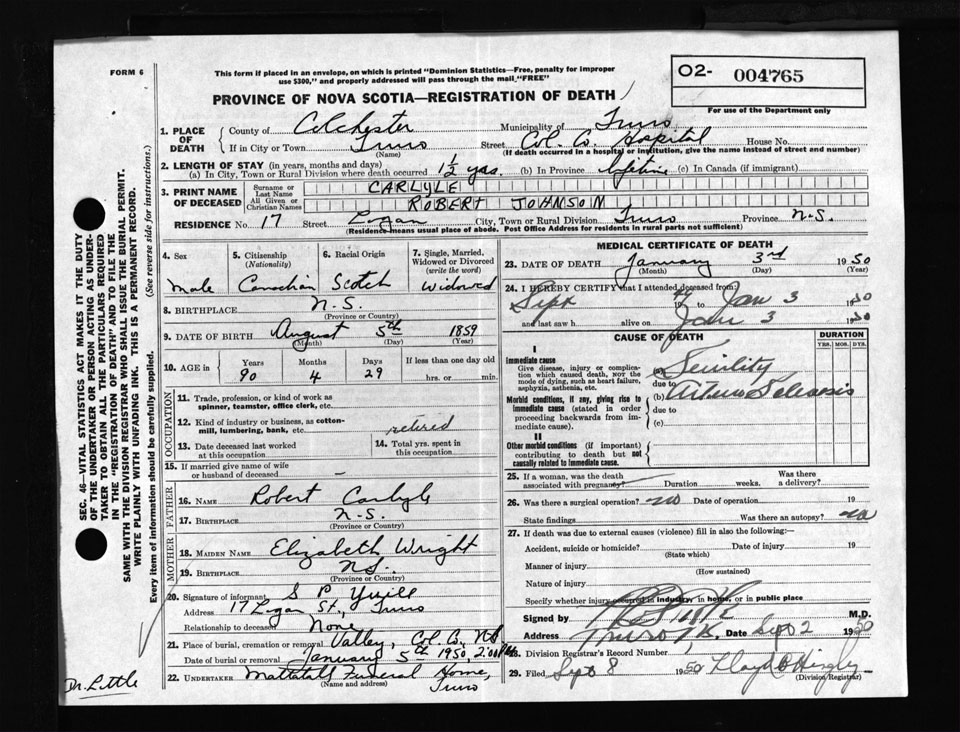 FORM 6
This form if placed in an envelope, on which is printed "Dominion Statistics—Free, penalty for improper
use $300," and properly addressed will pass through the mail "FREE"
O2- 004765
For use of the Department only
PROVINCE OF NOVA SCOTIA—REGISTRATION OF DEATH
1. PLACE OF DEATH County of Colchester Municipality of Truro
If in City or Town Truro (Name) Street Col. Co. Hospital House No.
(If death occurred in a hospital or institution, give the name instead of street and number)
2. LENGTH OF STAY (in years, months and days)
(a) In City, Town or Rural Division where death occurred 1½ yrs. (b) In Province lifetime (c) In Canada (if immigrant)
3. PRINT NAME OF DECEASED Surname or Last Name CARLYLE
All Given or Christian Names ROBERT JOHNSON
RESIDENCE No. 17 Street Logan City, Town or Rural Division Truro Province N.S.
(Residence means usual place of abode. Post Office Address for residents in rural parts not sufficient)
4. Sex Male
5. Citizenship (Nationality) Canadian
6. Racial Origin Scotch
7. Single, Married, Widowed or Divorced (write the word) Widowed
8. BIRTHPLACE N.S. (Province or Country)
9. DATE OF BIRTH August 5th 1859
(Month) (Day) (Year)
10. AGE in Years 90 Months 4 Days 29 If less than one day old hrs. or min.
OCCUPATION
11. Trade, profession, or kind of work as
spinner, teamster, office clerk, etc.
12. Kind of industry or business, as cotton-
mill, lumbering, bank, etc. retired
13. Date deceased last worked
at this occupation
14. Total yrs. spent in
this occupation
15. If married give name of wife
or husband of deceased –
FATHER
16. NAME Robert Carlyle
17. BIRTHPLACE N.S. (Province or Country)
MOTHER
18. MAIDEN NAME Elizabeth Wright
19. BIRTHPLACE N.S. (Province or Country)
20. Signature of informant S P Yuill
Address 17 Logan St., Truro
Relationship to deceased None
21. Place of burial, cremation or removal Valley, Col. Co, N.S.
Date of burial or removal January 5th 1950, 2:00
22. UNDERTAKER Mattatall Funeral Home, Truro
(Name and address)
MEDICAL CERTIFICATE OF DEATH
23. DATE OF DEATH January 3rd 1950
(Month) (Day) (Year)
24. I HEREBY CERTIFY that I attended deceased from:
Sept 19 to Jan 3 1950
and last saw h alive on Jan 3 1950
CAUSE OF DEATH
DURATION
YRS. MOS. DYS.
I
Immediate cause
Give disease, injury or complica-
tion which caused death, NOT the
mode of dying, such as heart failure,
asphyxia, asthenia, etc.
Senility
due to
Morbid conditions, if any, giving rise to
immediate cause (stated in order
proceeding backwards from im-
mediate cause).
(b) Arterio Sclerosis
due to
(c)
II
Other morbid conditions (if important)
contributing to death but not
causally related to immediate cause.
25. If a woman, was the death
associated with pregnancy? Duration weeks. Was there
a delivery?
26. Was there a surgical operation? no Date of operation 19
State findings Was there an autopsy? no
27. If death was due to external causes (violence) fill in also the following:—
Accident, suicide or homicide? Date of injury 19
(State which)
Manner of injury
(How sustained)
Nature of injury
Specify whether injury occurred in industry, in home, or in public place
Signed by M.D.
Address Truro N.S. Date Sept 2 1950
28. Division Registrar's Record Number
29. Filed Sept 8 1950 Lloyd
(Division Registrar)
SEC. 46—VITAL STATISTICS ACT MAKES IT THE DUTY
OF THE UNDERTAKER OR PERSON ACTING AS UNDER-
TAKER TO OBTAIN ALL THE PARTICULARS REQUIRED
IN THE "REGISTRATION OF DEATH" AND TO FILE THE
SAME WITH THE DIVISION REGISTRAR WHO SHALL ISSUE THE BURIAL PERMIT.
WRITE PLAINLY WITH UNFADING INK. THIS IS A PERMANENT RECORD.
Every item of information should be carefully supplied. (See reverse side for instructions.)
Dr. Little